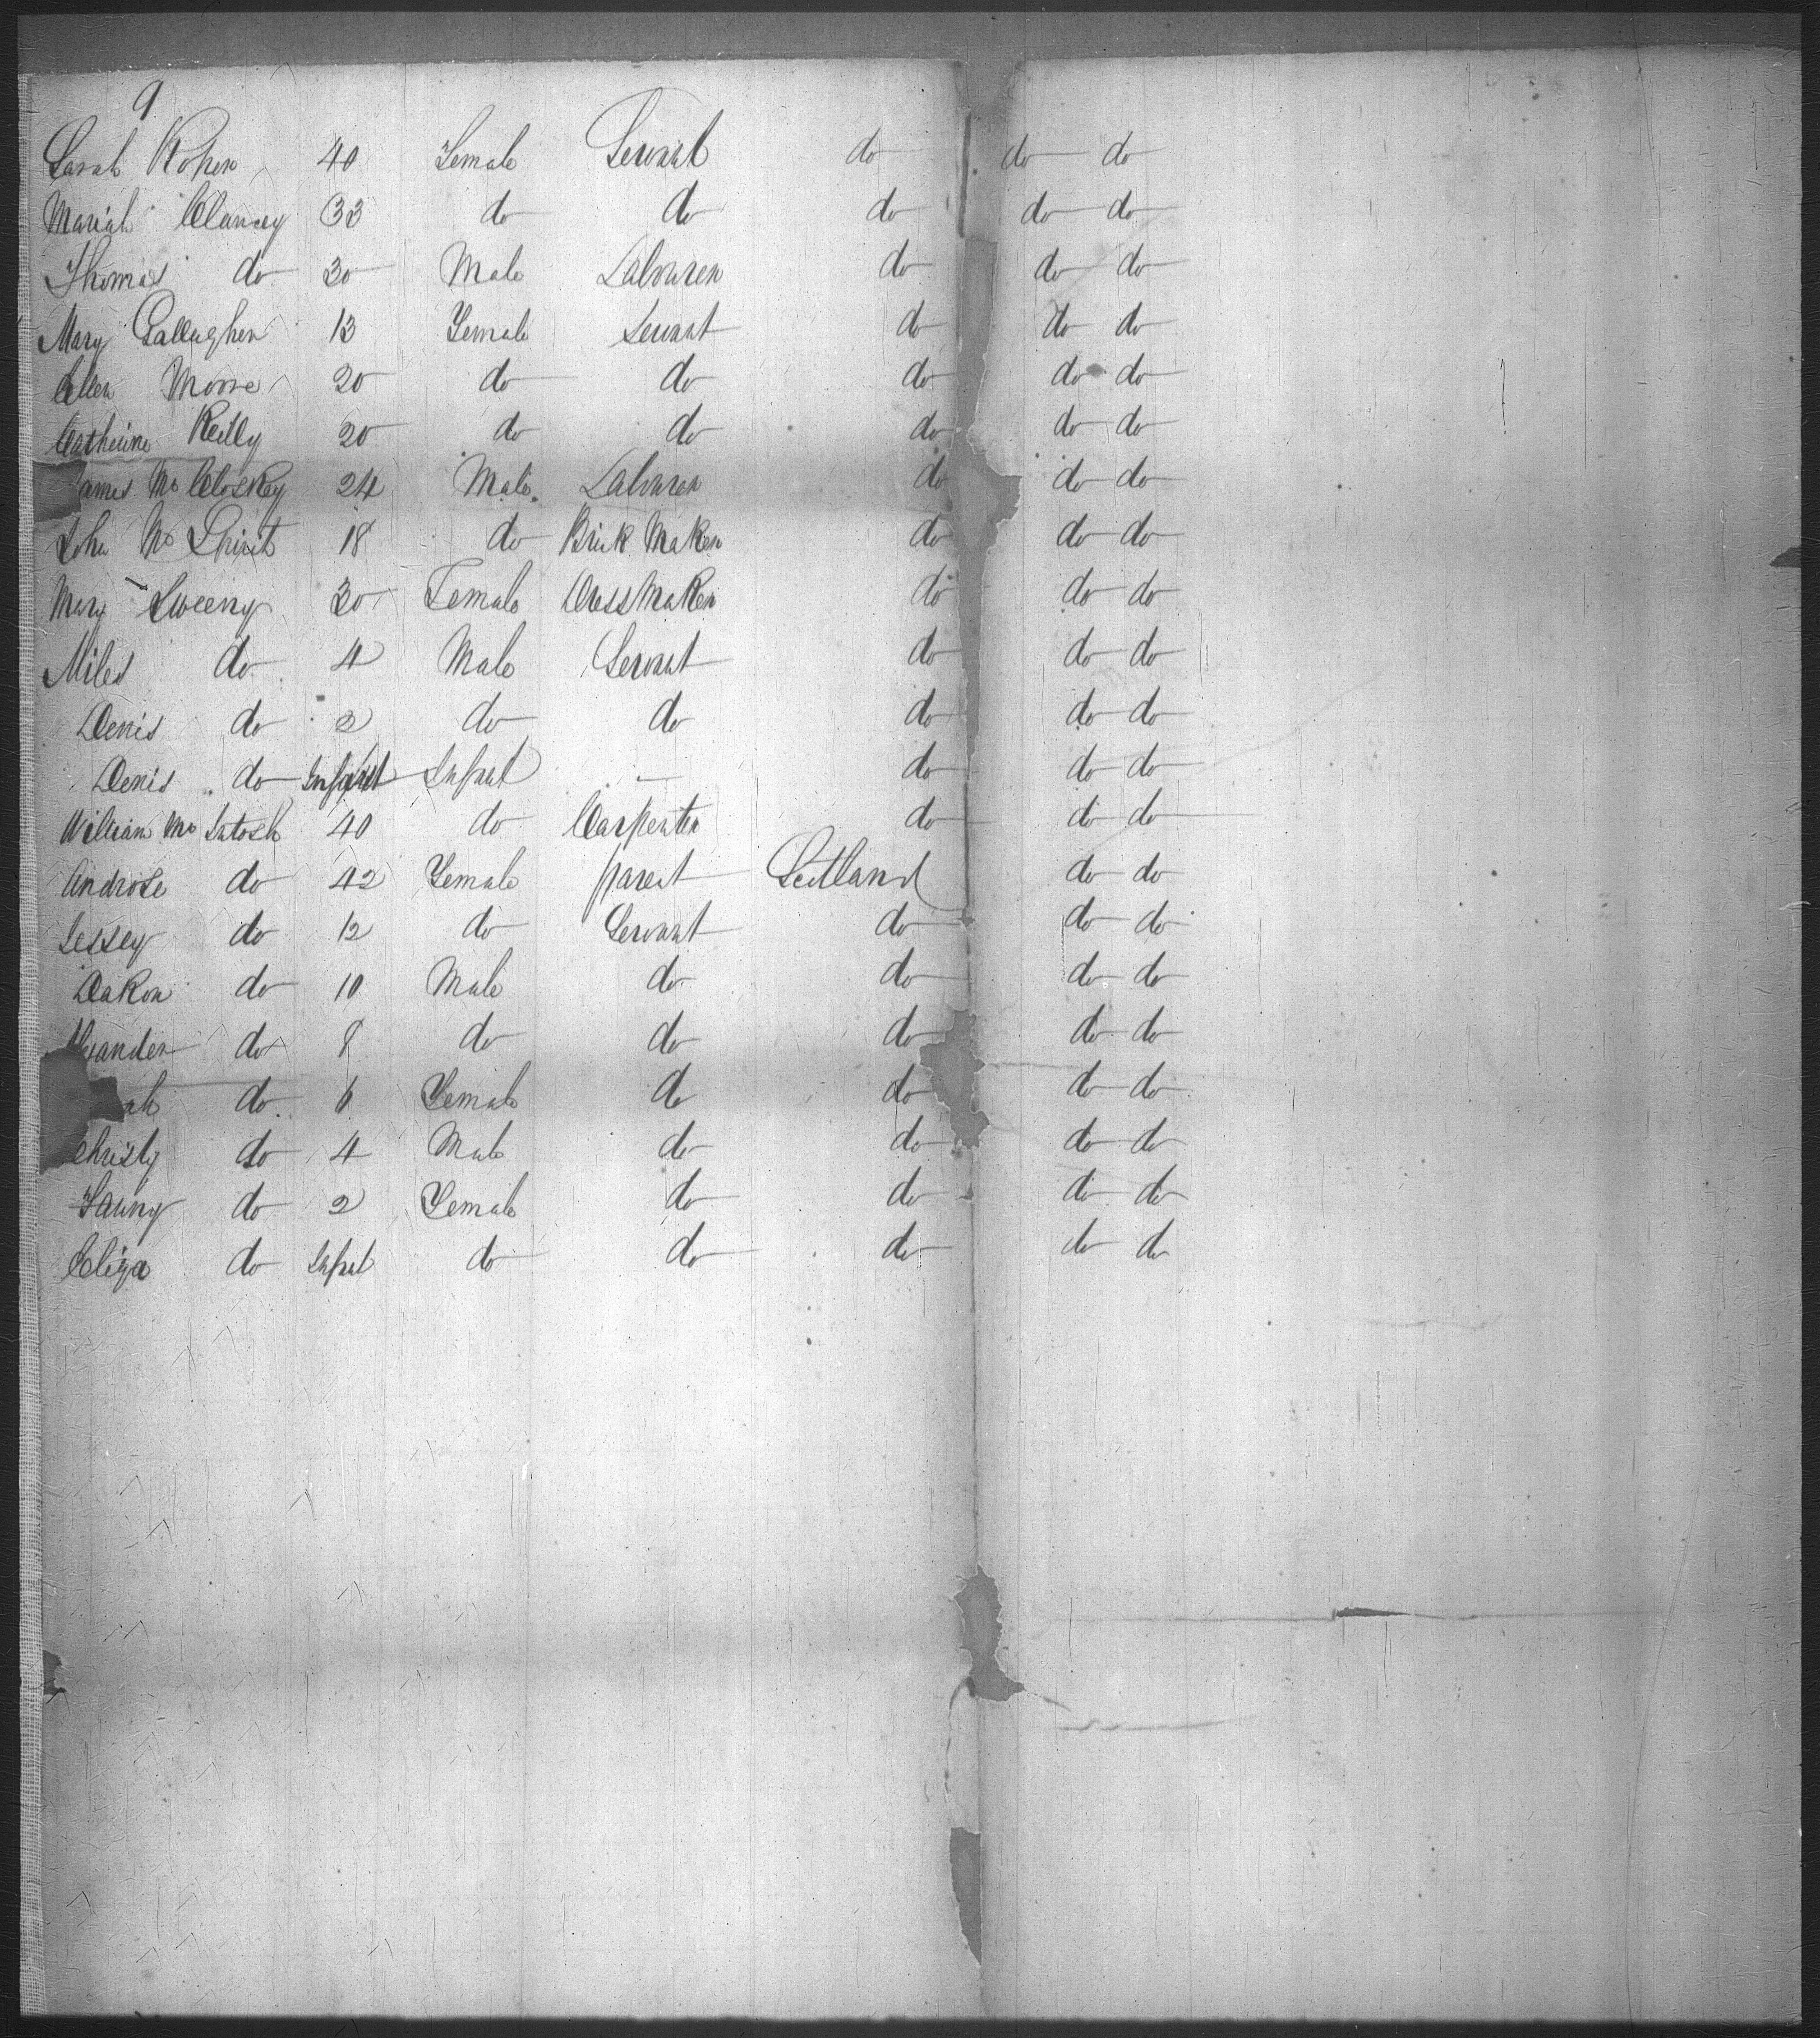 9
Sarah Roper 40 Female Servant do do do
Mariah Clancey 33 do do do do do
Thomas do 30 Male Labourer do do do
Mary Gallagher 13 Female Servant do do do
Ellen Moore 20 do do do do do
Catherine Reilly 20 do do do do do
ames Mc Closkey 24 Male Labourer do do do
John Mc Spirit 18 do Brick Maker do do do
Mary Sweeny 30 Female Dress Maker do do do
Miles do 4 Male Servant do do do
Denis do 2 do do do do do
Denis do Infant Infant — do do do
William Mc Intosh 40 do Carpenter do do do
Androse do 42 Female parent Scotland do do
Jessey do 12 do Servant do do do
do 10 Male do do do do
do 8 do do do do do
ah do 6 Female do do do do
Christy do 4 Male do do do do
do 2 Female do do do do
Eliza do Infant do do do do do